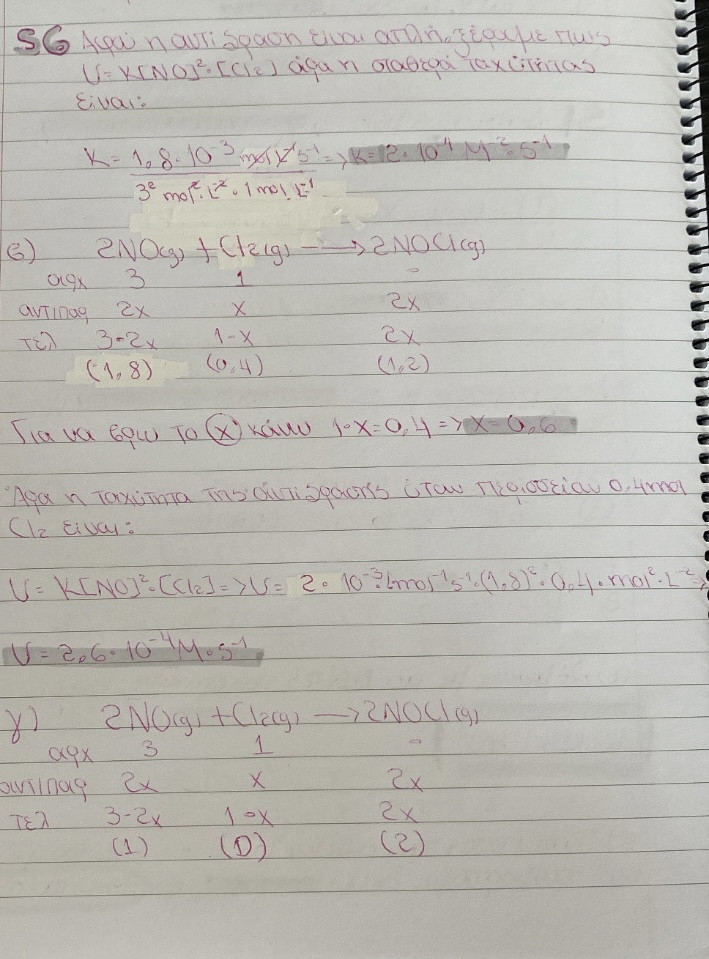 56 Αφού η αντίδραση είναι απλή, ξέρουμε πως
U=K[NO]²·[Cl2] άρα η σταθερά ταχύτητας
είναι:
K = 1,8·10⁻³ mol L⁻¹ s⁻¹ => K=2·10⁻⁴ M⁻²·s⁻¹
3² mol²·L⁻²·1 mol L⁻¹
β) 2NO(g) + Cl2(g) → 2NOCl(g)
αρχ 3 1 -
αντ/παρ 2x x 2x
τελ 3-2x 1-x 2x
(1,8) (0,4) (1,2)
Για να βρω το x κάνω 1-x=0,4 => x=0,6
Άρα η ταχύτητα της αντίδρασης όταν περισσεύουν 0,4mol
Cl2 είναι:
U= K[NO]²·[Cl2] => U= 2·10⁻³ L mol⁻¹ s⁻¹·(1,8)²·0,4·mol²·L⁻² =>
U=2,6·10⁻⁴ M·s⁻¹
γ) 2NO(g) + Cl2(g) → 2NOCl(g)
αρχ 3 1 -
αντ/παρ 2x x 2x
τελ 3-2x 1-x 2x
(1) (0) (2)